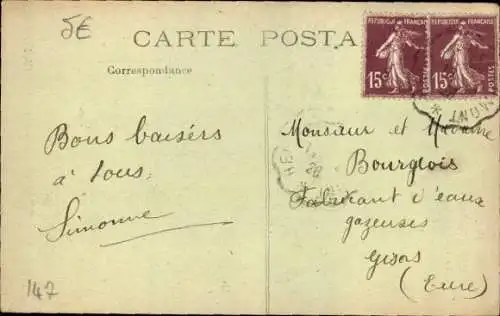 5€
CARTE POSTA
Correspondance
REPUBLIQUE FRANÇAISE
15c
POSTES
REPUBLIQUE FRANÇAISE
15c
POSTES
Bons baisers
à tous.
Simonne
147
Monsieur et Madame
Bourglois
Fabricant d'eaux
gazeuses
Gisors
(Eure)